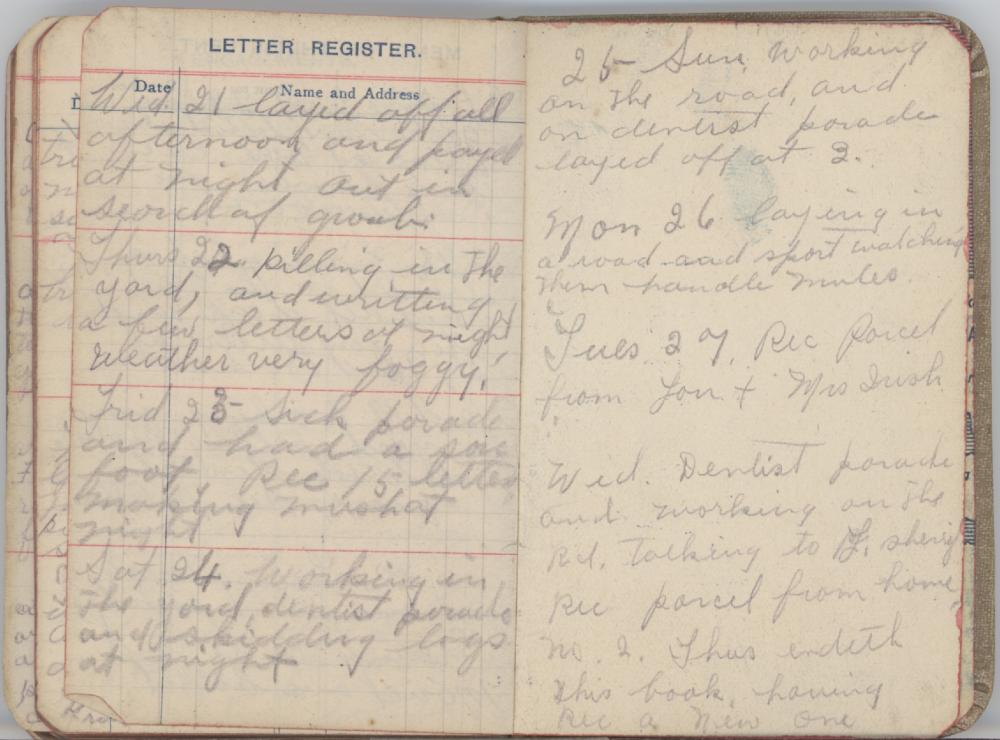 LETTER REGISTER.
Date Name and Address
Wed. 21 layed off all
afternoon and payed
at night, out in
search of
Thurs 22. pilling in the
yard, and writting
a few letters at night
weather very foggy.
Frid 23 Sick parade
and had a
foot, Rec 15 letters
making mush at
night
Sat 24. Working in
the yard, dentist parade
and skidding logs
at night
25 Sun, working
on the road, and
on dentist parade
layed off at 2.
Mon 26 laying in
a road and sport watching
them handle mules.
Tues 27, Rec Parcel
from Lou + Mrs Irish
Wed. Dentist parade
and working on the
Rd, talking to
Rec parcel from home,
no. 2. Thus endeth
this book, having
Rec a New One